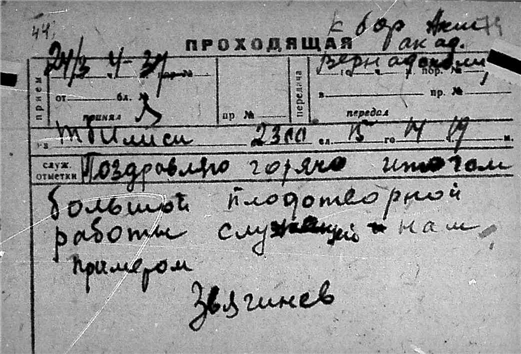 44
ПРОХОДЯЩАЯ
акад.
прием
от бл. №
принял
пр №
передача
пор. №
в бл. №
передал
из Тбилиси 2300 сл. 15 го 4 19 м.
служ. отметки Поздравляю горячо итогом
большой плодотворной
работы служащей нам
примером
Звягинцев